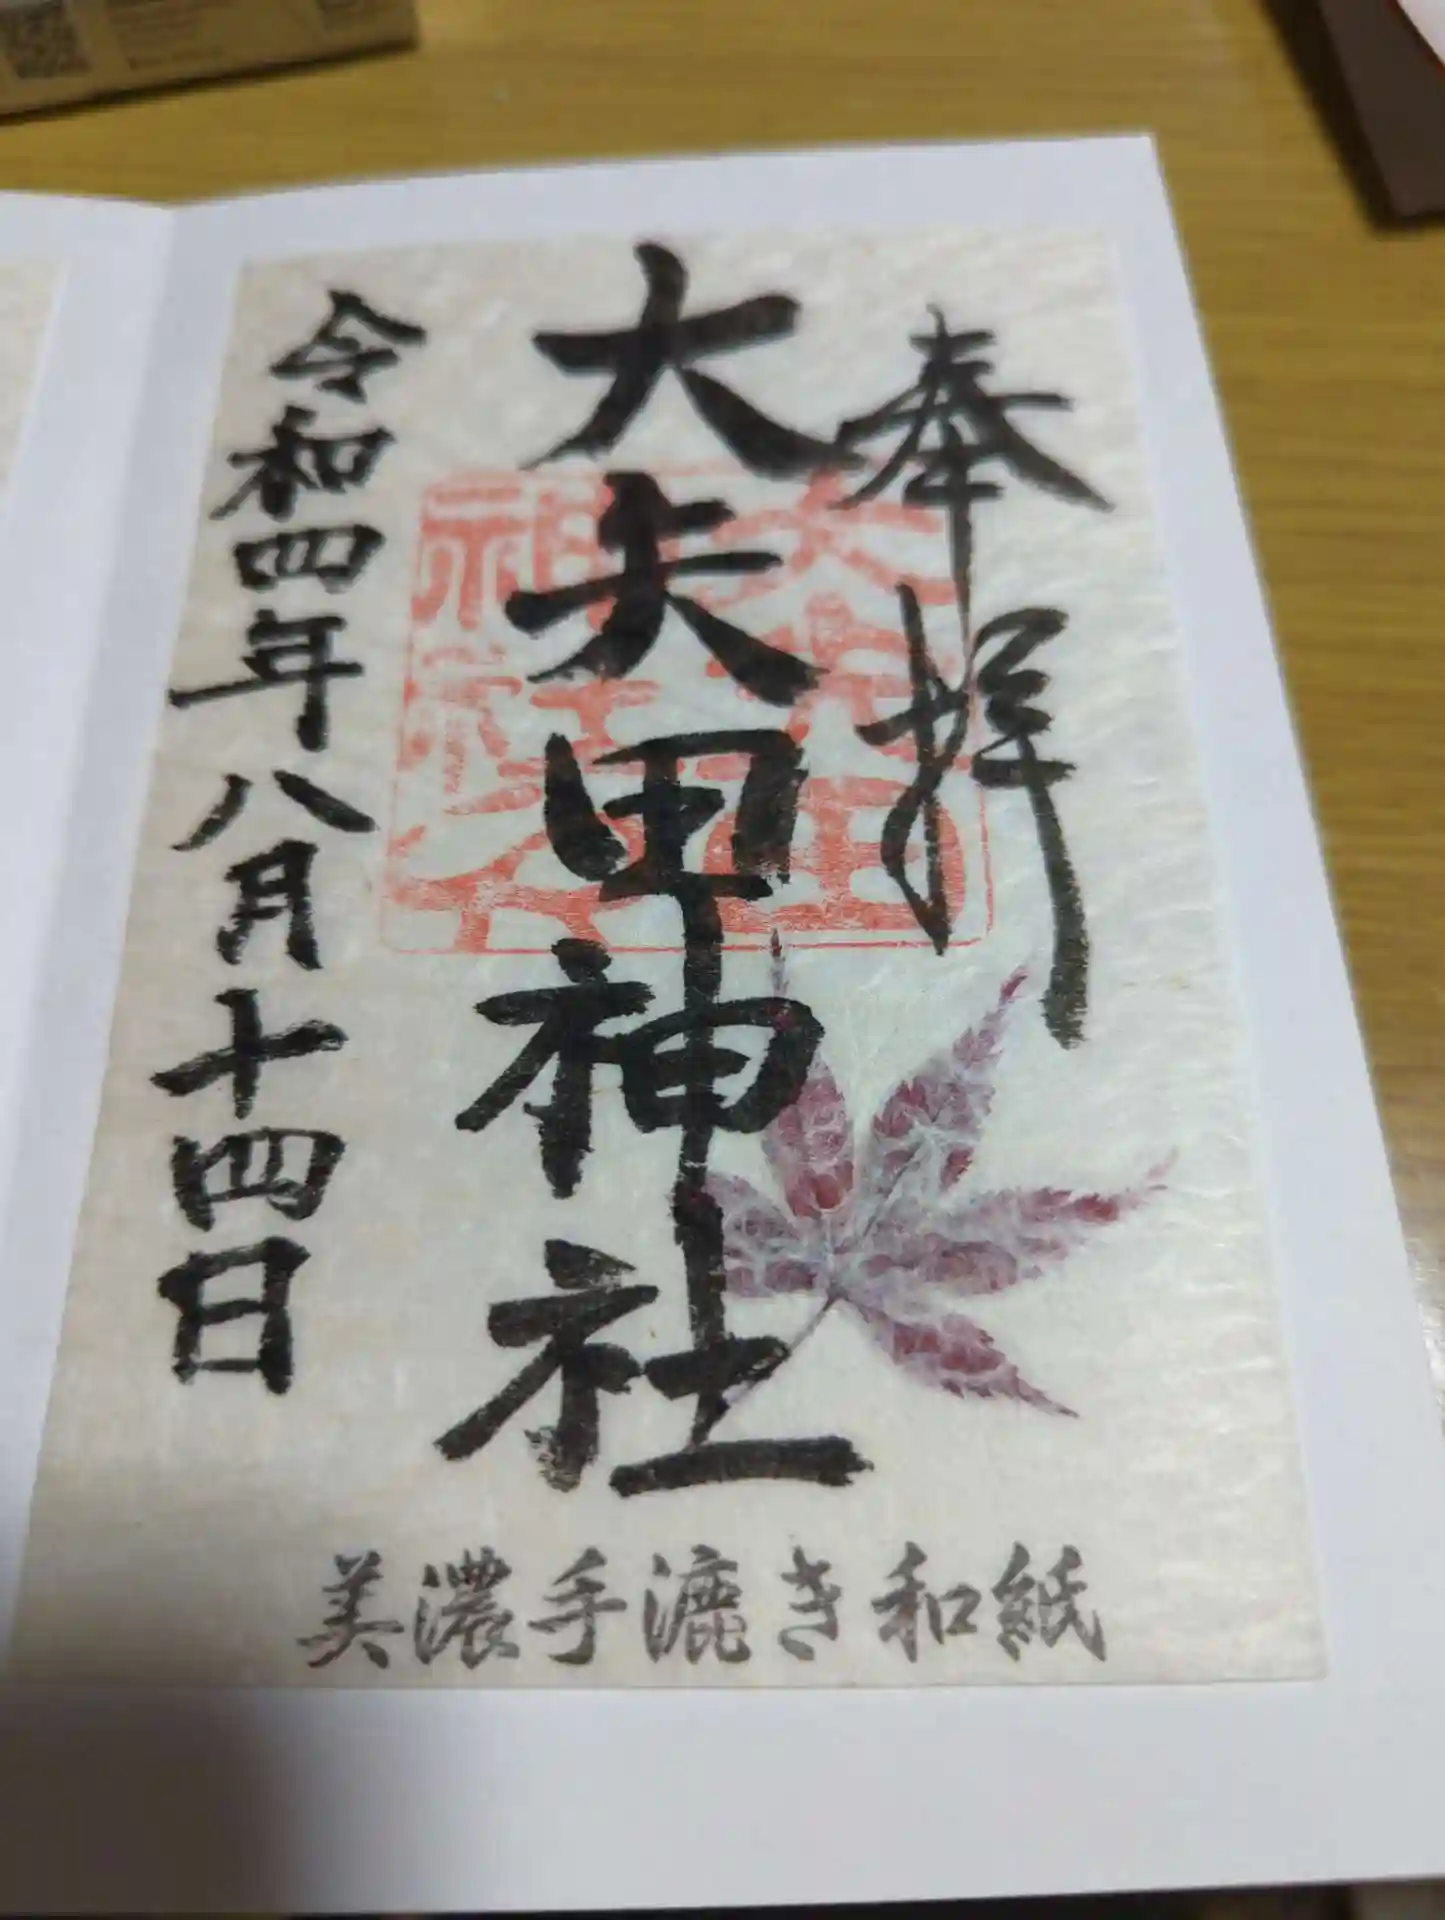 奉拝
大矢田神社
令和四年八月十四日
美濃手漉き和紙